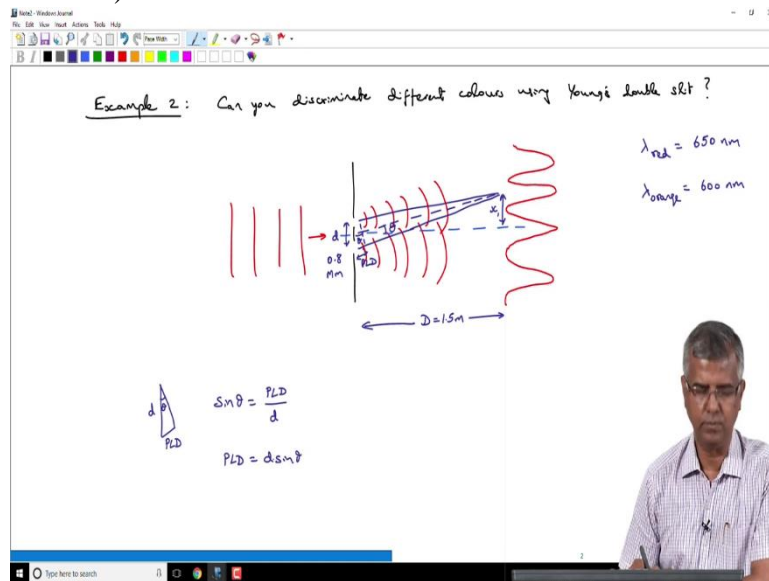 Note2 - Windows Journal
File Edit View Insert Actions Tools Help
Page Width
B I
Example 2: Can you discriminate different colours using Young's double slit?
λred = 650 nm
λorange = 600 nm
d
θ
x₁
0.8
mm
PLD
D=1.5m
d θ
PLD
sinθ = PLD/d
PLD = dsinθ
2
Type here to search